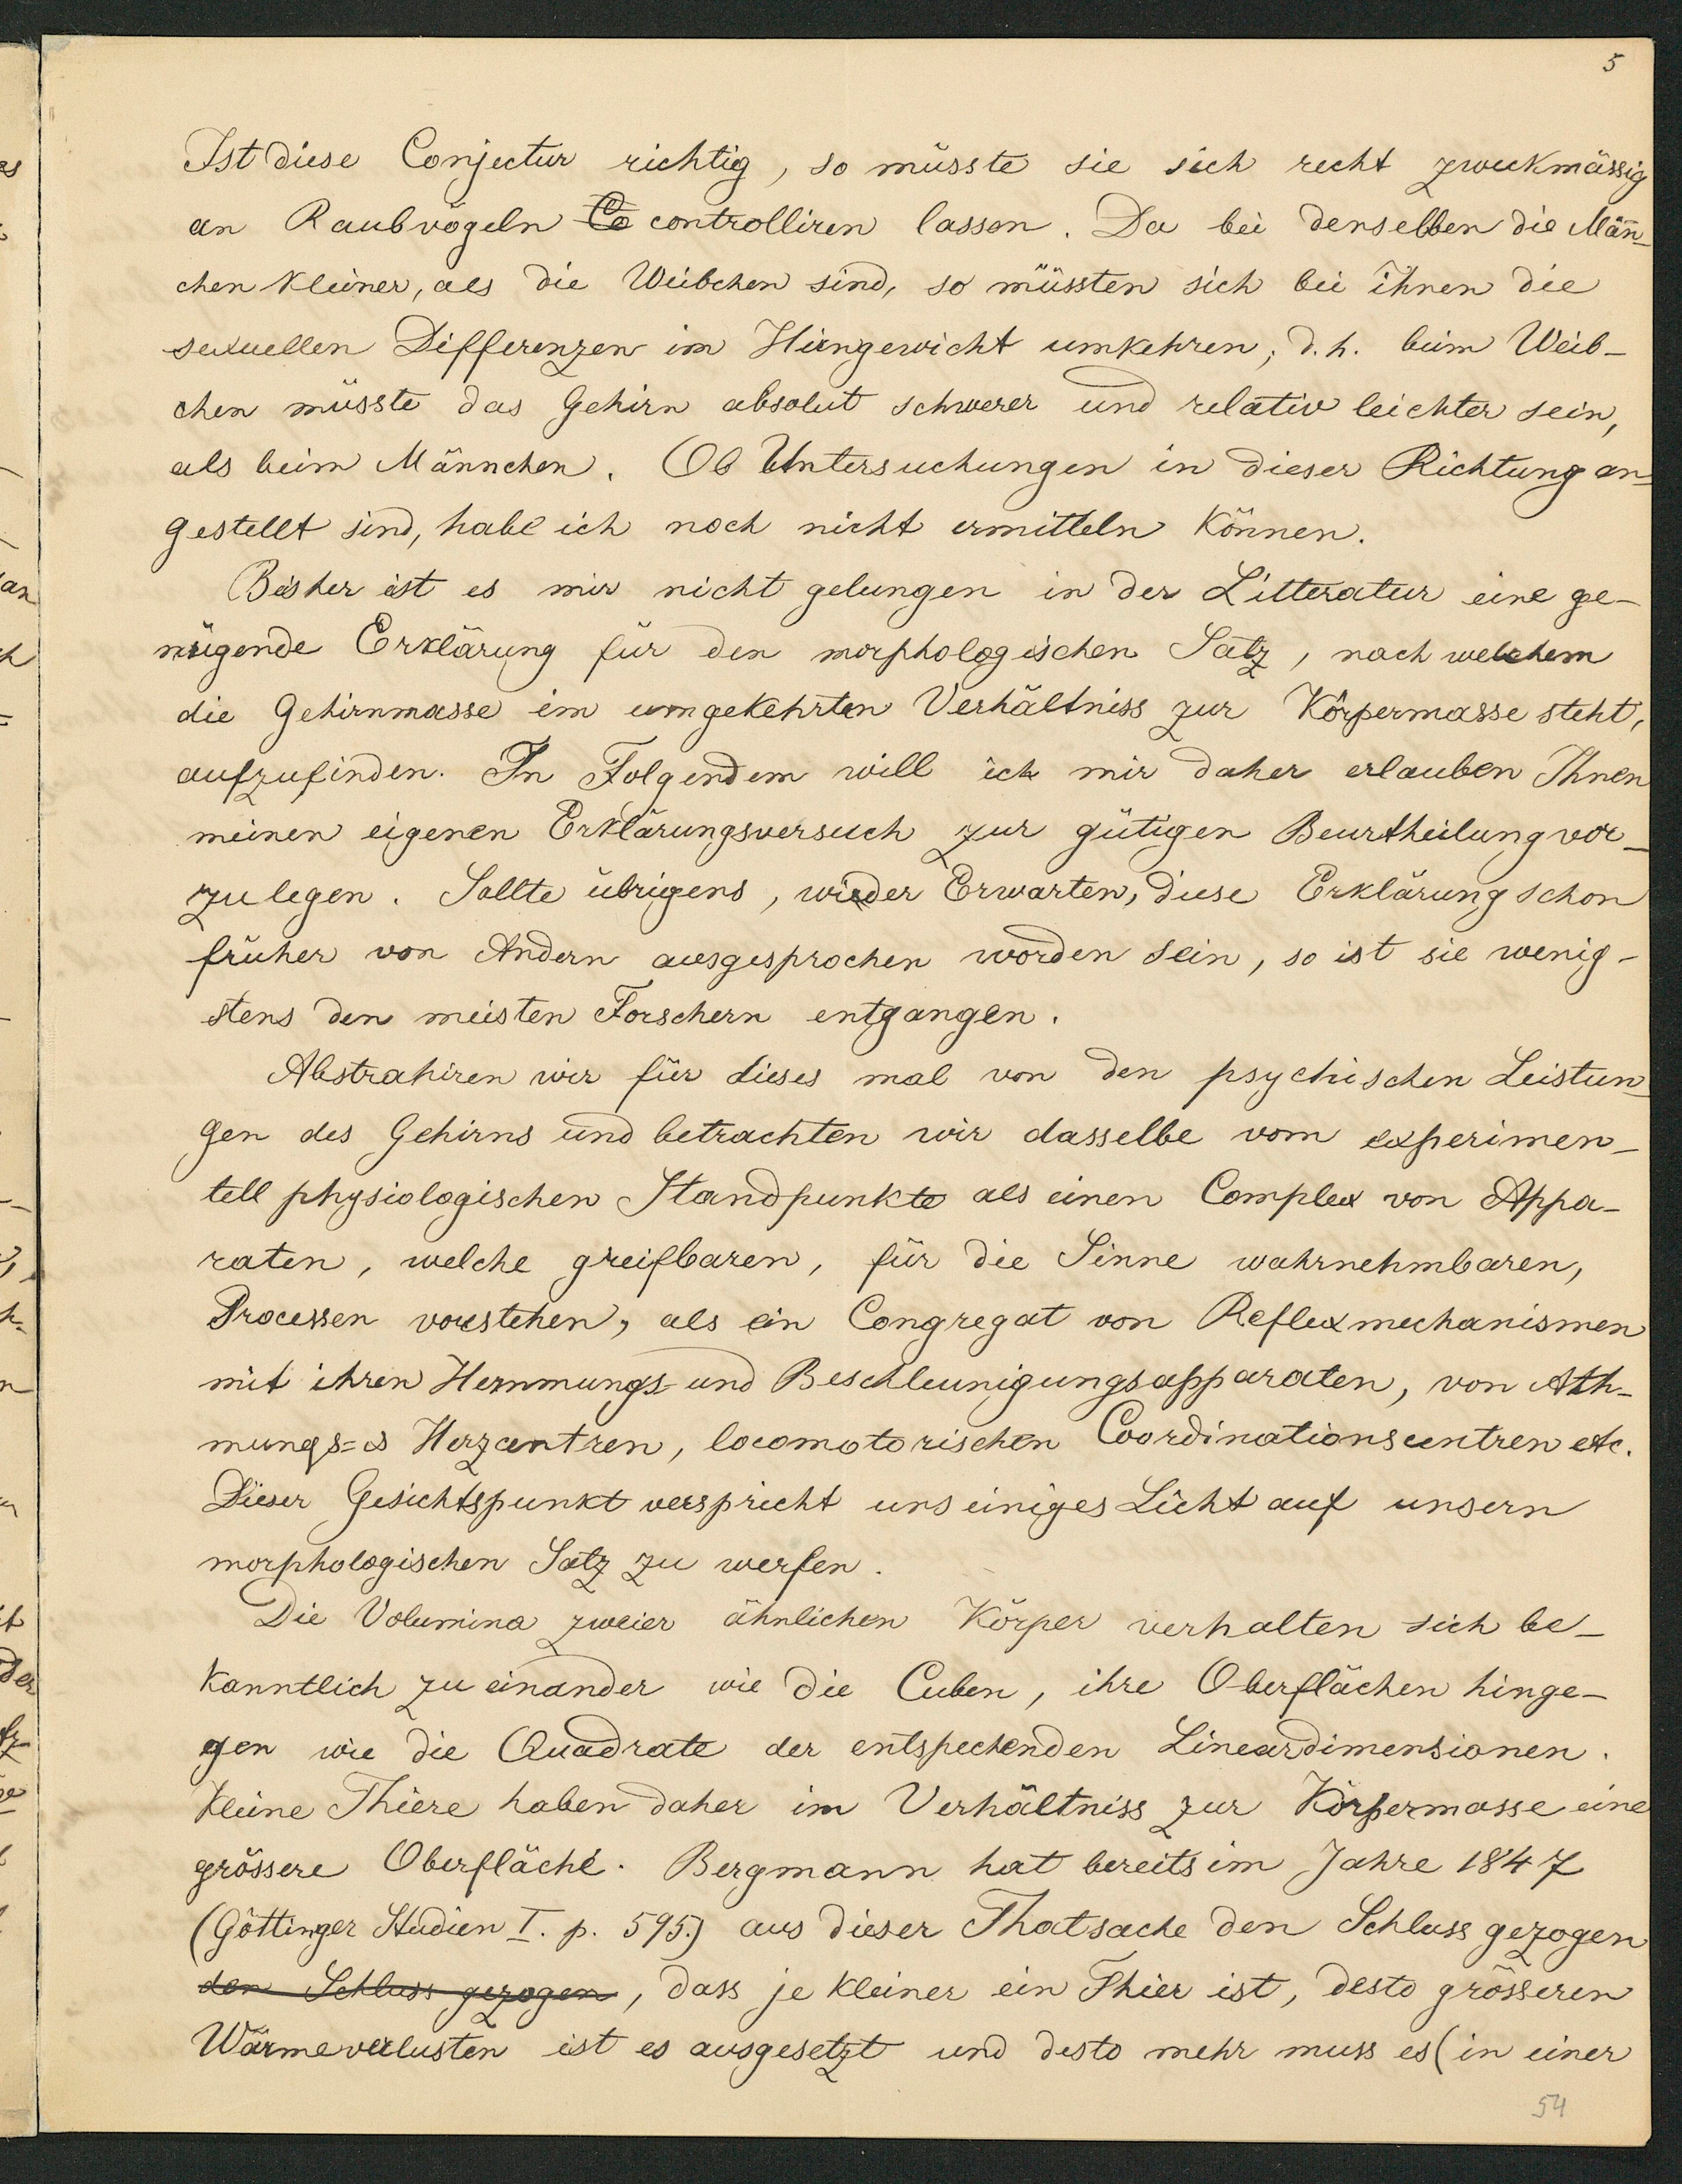 5
Ist diese Conjectur richtig, so müsste sie sich recht zweckmässig
an Raubvögeln Co controlliren lassen. Da bei denselben die Män̄-
chen kleiner, als die Weibchen sind, so müssten sich bei ihnen die
sexuellen Differenzen im Hirngewicht umkehren, d. h. beim Weib-
chen müsste das Gehirn absolut schwerer und relativ leichter sein,
als beim Männchen. Ob Untersuchungen in dieser Richtung an-
gestellt sind, habe ich noch nicht ermitteln können.
Bisher ist es mir nicht gelungen in der Litteratur eine ge-
nügende Erklärung für den morphologischen Satz, nach welchem
die Gehirnmasse im umgekehrten Verhältniss zur Körpermasse steht,
aufzufinden. In Folgendem will ich mir daher erlauben Ihnen
meinen eigenen Erklärungsversuch zur gütigen Beurtheilung vor-
zulegen. Sollte übrigens, wider Erwarten, diese Erklärung schon
früher von Andern ausgesprochen worden sein, so ist sie wenig-
stens den meisten Forschern entgangen.
Abstrahiren wir für dieses mal von den psychischen Leistun-
gen des Gehirns und betrachten wir dasselbe vom experimen-
tell physiologischen Standpunkte als einen Complex von Appa-
raten, welche greifbaren, für die Sinne wahrnehmbaren,
Processen vorstehen, als ein Congregat von Reflexmechanismen
mit ihren Hemmungs- und Beschleunigungsapparaten, von Ath-
mungs- & Herzcentren, locomotorischen Coordinationscentren etc.
Dieser Gesichtspunkt verspricht uns einiges Licht auf unsern
morphologischen Satz zu werfen.
Die Volumina zweier ähnlichen Körper verhalten sich be-
kanntlich zu einander wie die Cuben, ihre Oberflächen hinge-
gen wie die Quadrate der entspechenden Lineardimensionen.
Kleine Thiere haben daher im Verhältniss zur Körpermasse eine
grössere Oberfläche. Bergmann hat bereits im Jahre 1847
(Göttinger Studien I. p. 595.) aus dieser Thatsache den Schluss gezogen
den Schluss gezogen, dass je kleiner ein Thier ist, desto grösseren
Wärmeverlusten ist es ausgesetzt und desto mehr muss es (in einer
54